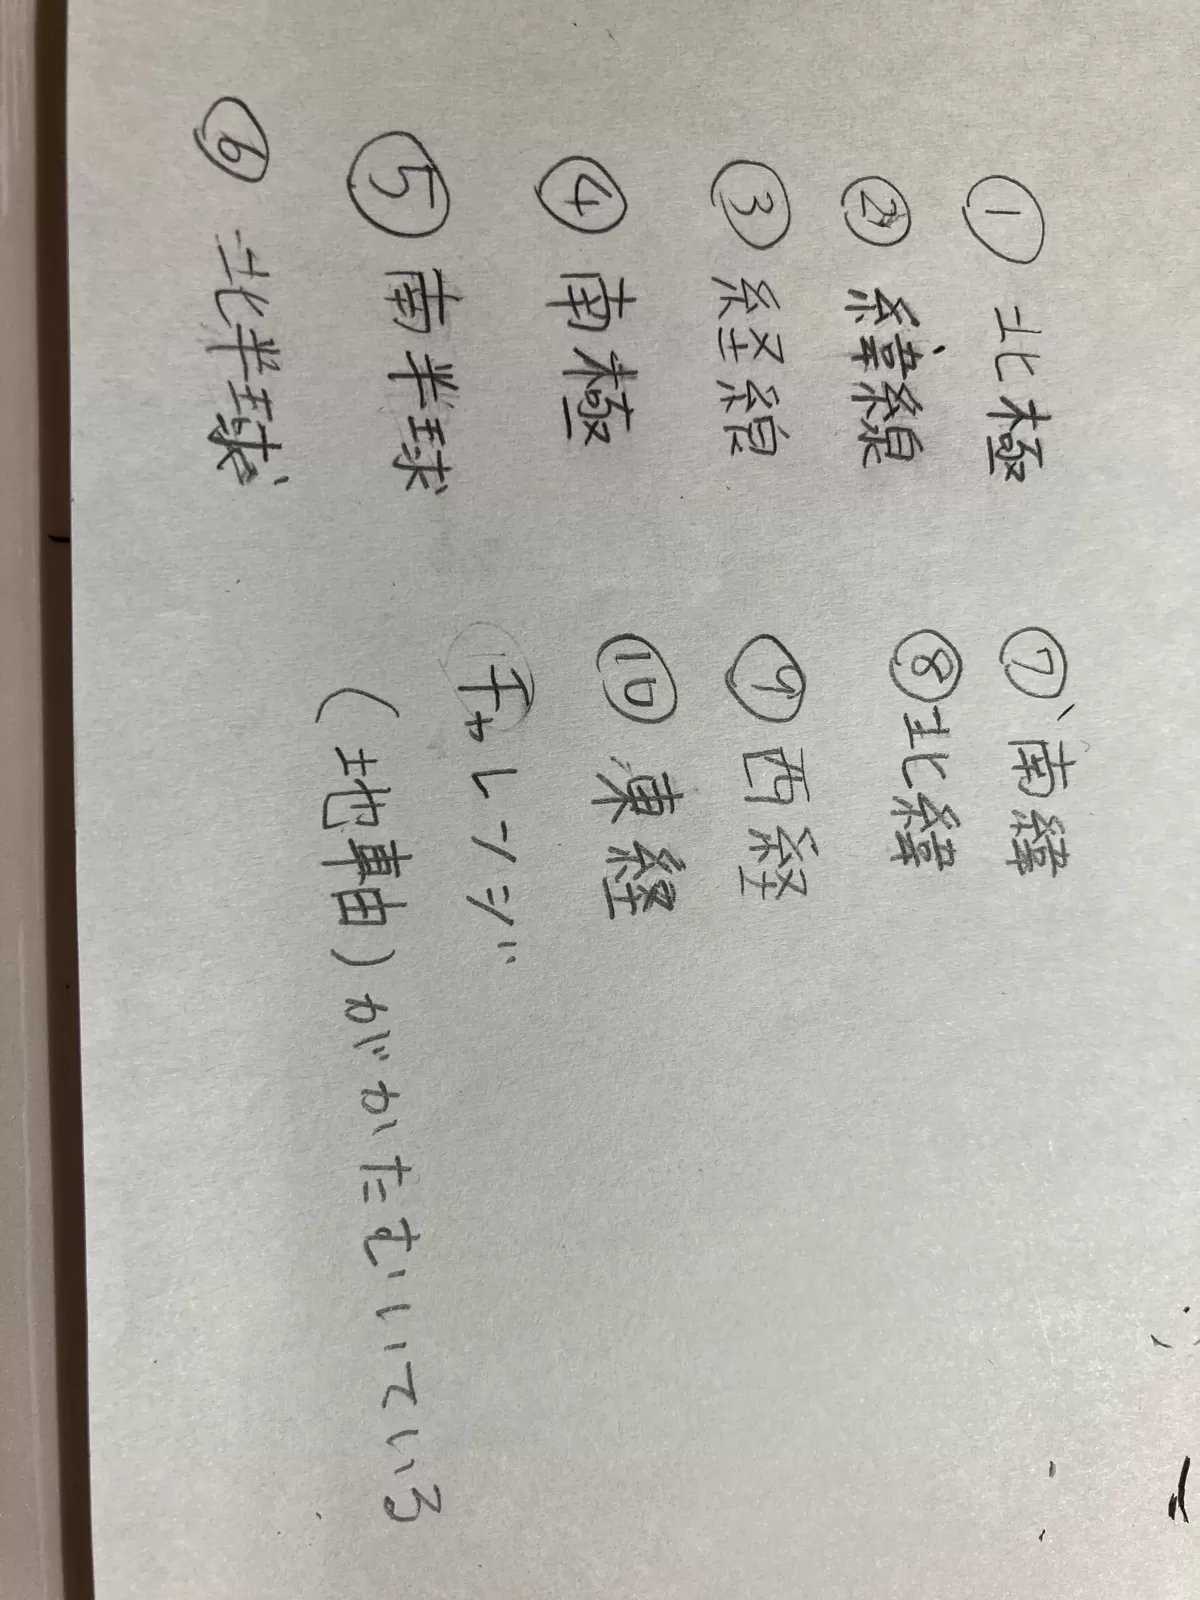 ① 北極
② 緯線
③ 経線
④ 南極
⑤ 南半球
⑥ 北半球
⑦ 南緯
⑧ 北緯
⑨ 西経
⑩ 東経
チャレンジ
(地軸)がかたむいている